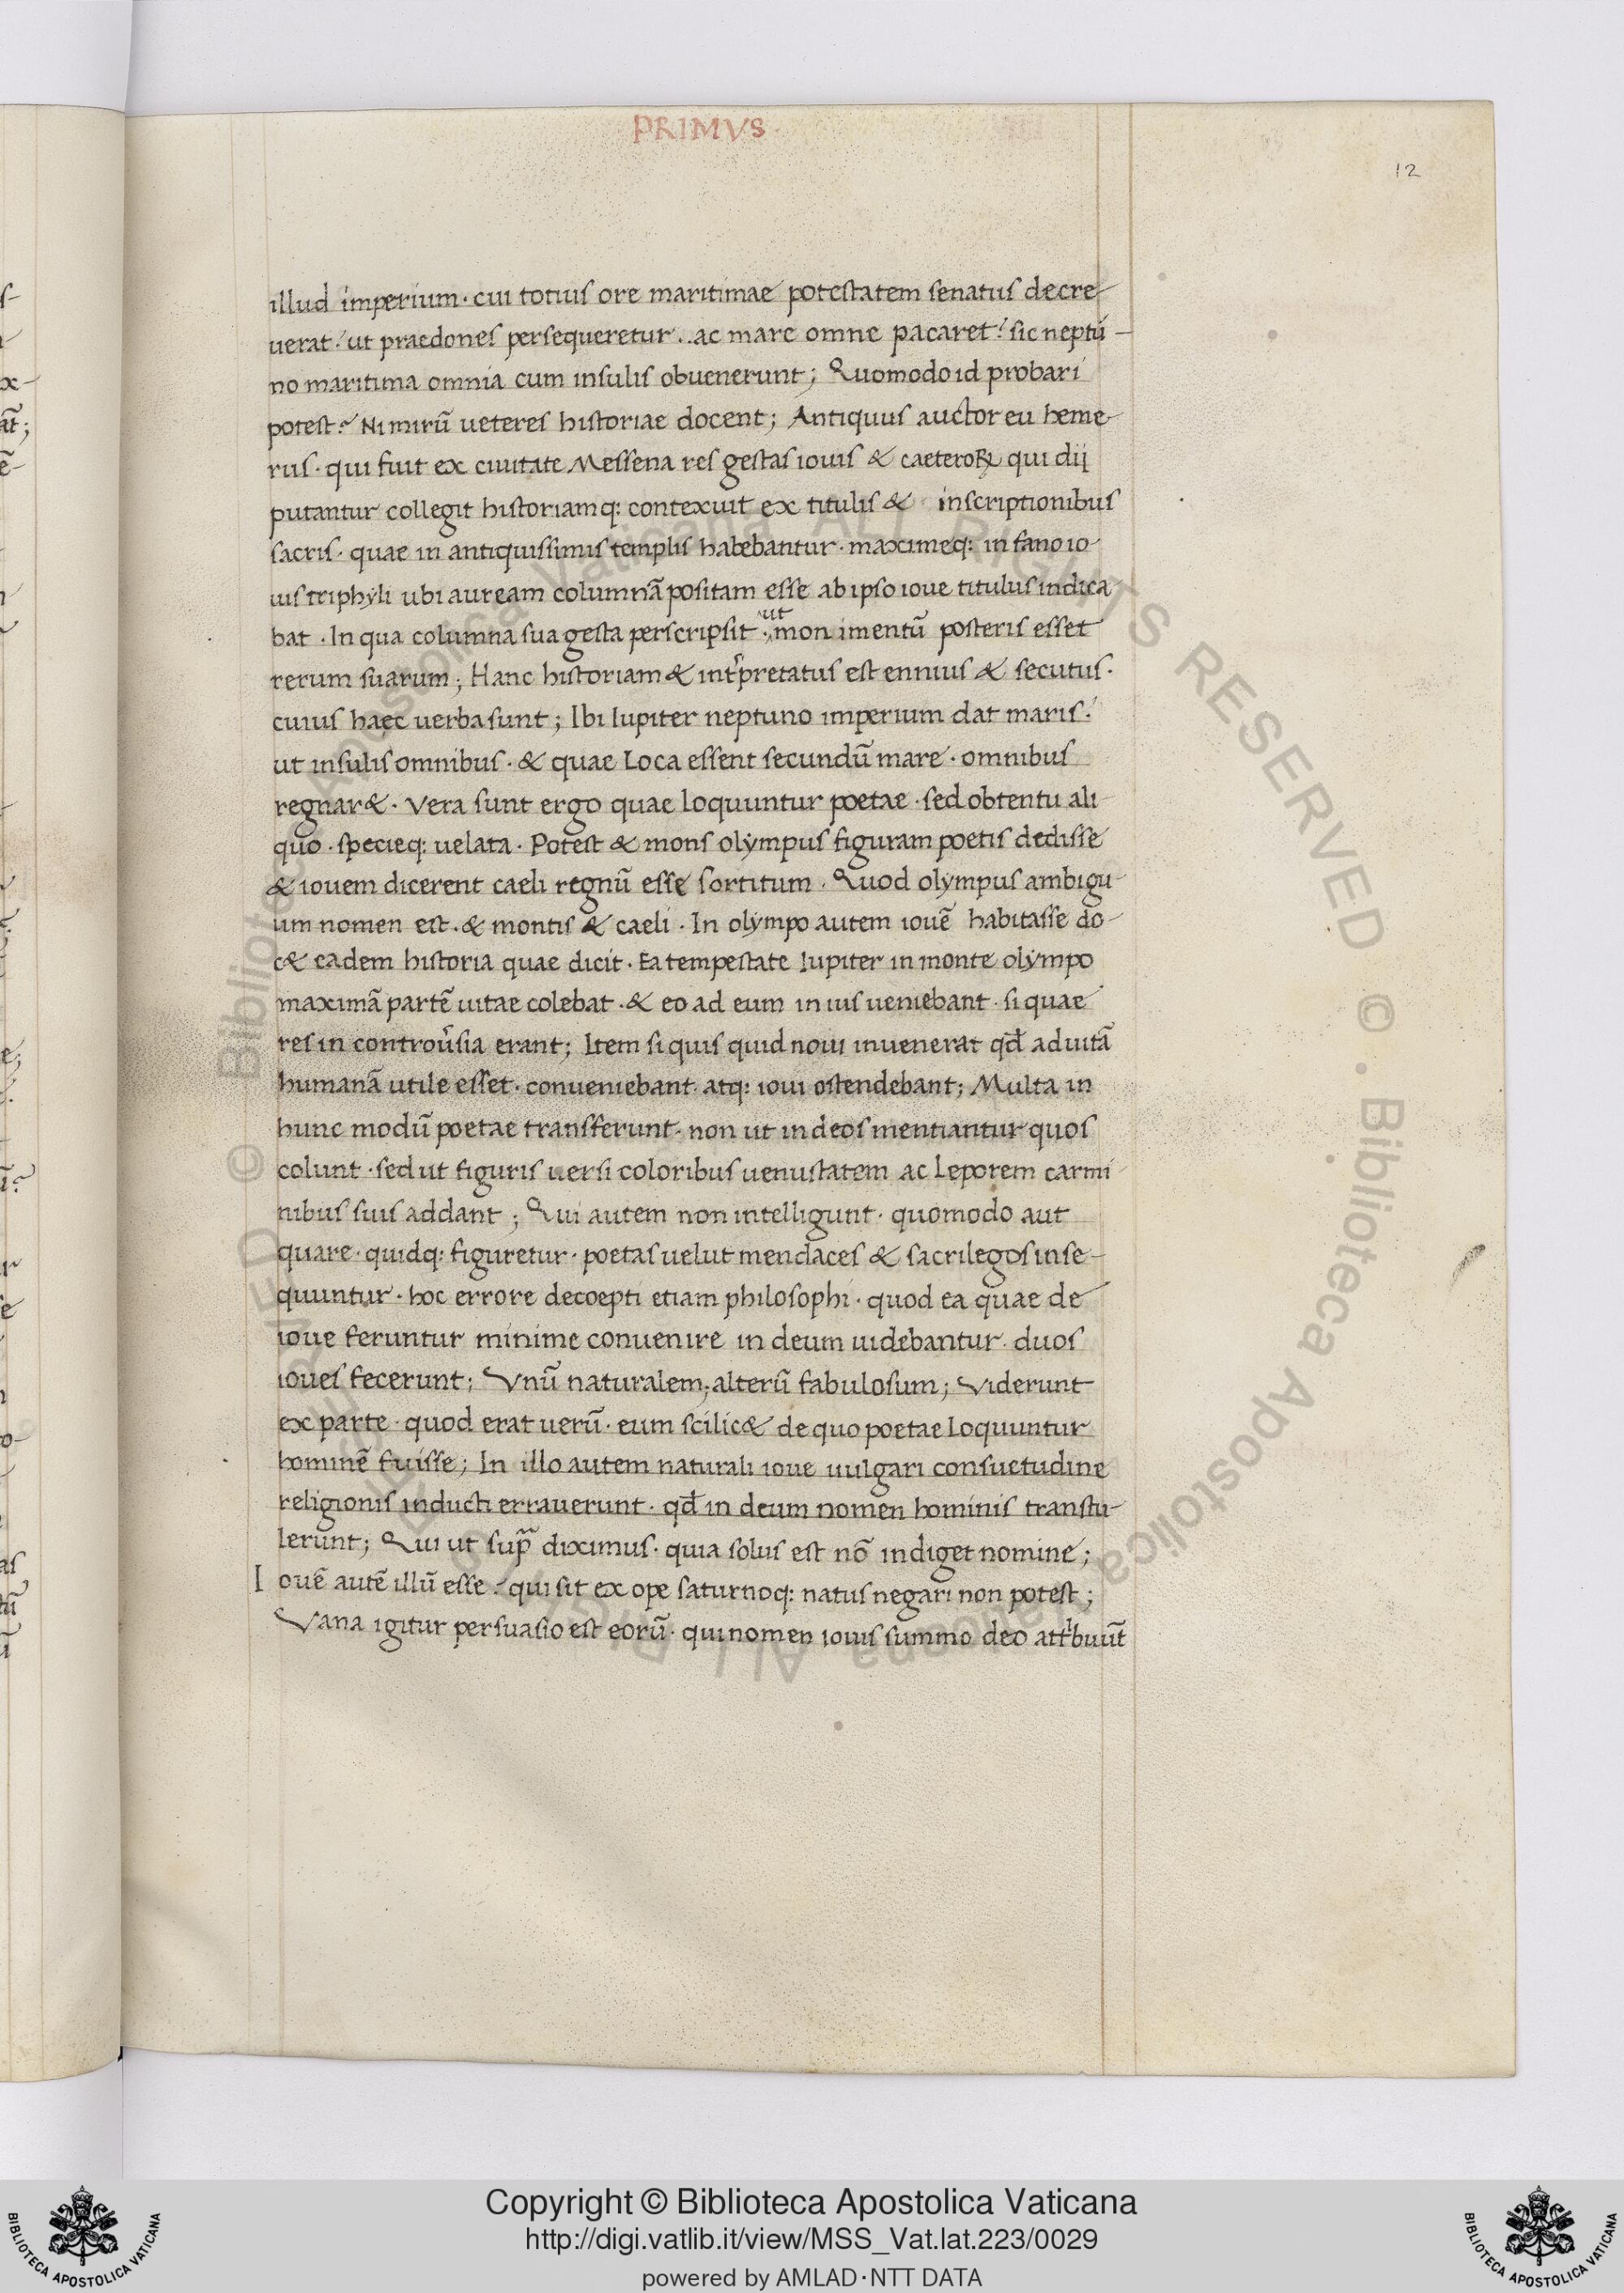 PRIMVS
12
illud imperium · cui totius ore maritimae potestatem senatus decre-
uerat: ut praedones persequeretur .. ac mare omne pacaret: sic neptú-
no maritima omnia cum insulis obuenerunt; Quomodo id probari
potest? Nimirū ueteres historiae docent; Antiquus auctor eu heme-
rus · qui fuit ex ciuitate Messena res gestas iouis & caeteroꝝ qui dij
putantur collegit historiamq: contexuit ex titulis & inscriptionibus
sacris · quae in antiquissimis templis habebantur · maximeq: in fano io-
uis triphyli ubi auream columnā positam esse ab ipso ioue titulus indica
bat · In qua columna sua gesta perscripsit · ut monimentū posteris esset
rerum suarum; Hanc historiam & int̉pretatus est ennius & secutus ·
cuius haec uerba sunt; Ibi Iupiter neptuno imperium dat maris:
ut insulis omnibus · & quae Loca essent secundū mare · omnibus
regnar& · Vera sunt ergo quae loquuntur poetae · sed obtentu ali-
quo · specieq: uelata · Potest & mons olympus figuram poetis dedisse
& iouem dicerent caeli regnū esse sortitum · Quod olympus ambigu-
um nomen est · & montis & caeli · In olympo autem iouē habitasse do-
c& eadem historia quae dicit · Ea tempestate Iupiter in monte olympo
maximā partē uitae colebat · & eo ad eum in ius ueniebant · si quae
res in controu̓sia erant; Item si quis quid noui inuenerat qđ ad uitā
humanā utile esset · conueniebant · atq: ioui ostendebant; Multa in
hunc modū poetae transferunt · non ut in deos mentiantur quos
colunt · sed ut figuris uersi coloribus uenustatem ac Leporem carmi-
nibus suis addant; Qui autem non intelligunt · quomodo aut
quare · quidq: figuretur · poetas uelut mendaces & sacrilegos inse-
quuntur · hoc errore decoepti etiam philosophi · quod ea quae de
ioue feruntur minime conuenire in deum uidebantur · duos
ioues fecerunt; Vnū naturalem; alterū fabulosum; Viderunt
ex parte · quod erat uerū · eum scilic& de quo poetae Loquuntur
hominē fuisse; In illo autem naturali ioue uulgari consuetudine
religionis inducti errauerunt · qđ in deum nomen hominis transtu-
lerunt; Qui ut sup̃ diximus · quia solus est nō indiget nomine;
Iouē autē illū esse: qui sit ex ope saturnoq: natus negari non potest;
Vana igitur persuasio est eorū · qui nomen iouis summo deo attⁱbuūt
Copyright © Biblioteca Apostolica Vaticana
http://digi.vatlib.it/view/MSS_Vat.lat.223/0029
powered by AMLAD·NTT DATA
BIBLIOTECA APOSTOLICA VATICANA
BIBLIOTECA APOSTOLICA VATICANA